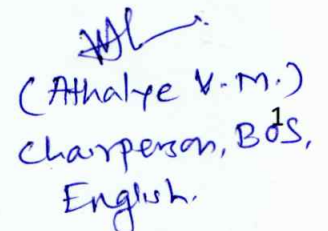 (Athalye V.M.)
Chairperson, BOS,
1
English.